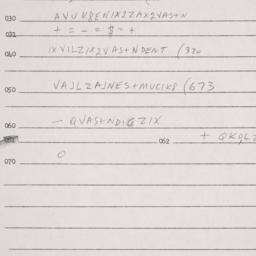 030 AVUKBENIXIZAX2VAS+N
031 + = - = $ = +
040 IXVILZIX2VAS+NDENT (320
050 VAJLZAJNES+MUCIKS (673
060 - QVAS+NDIGZIX
062 + QKQLZ
070 0